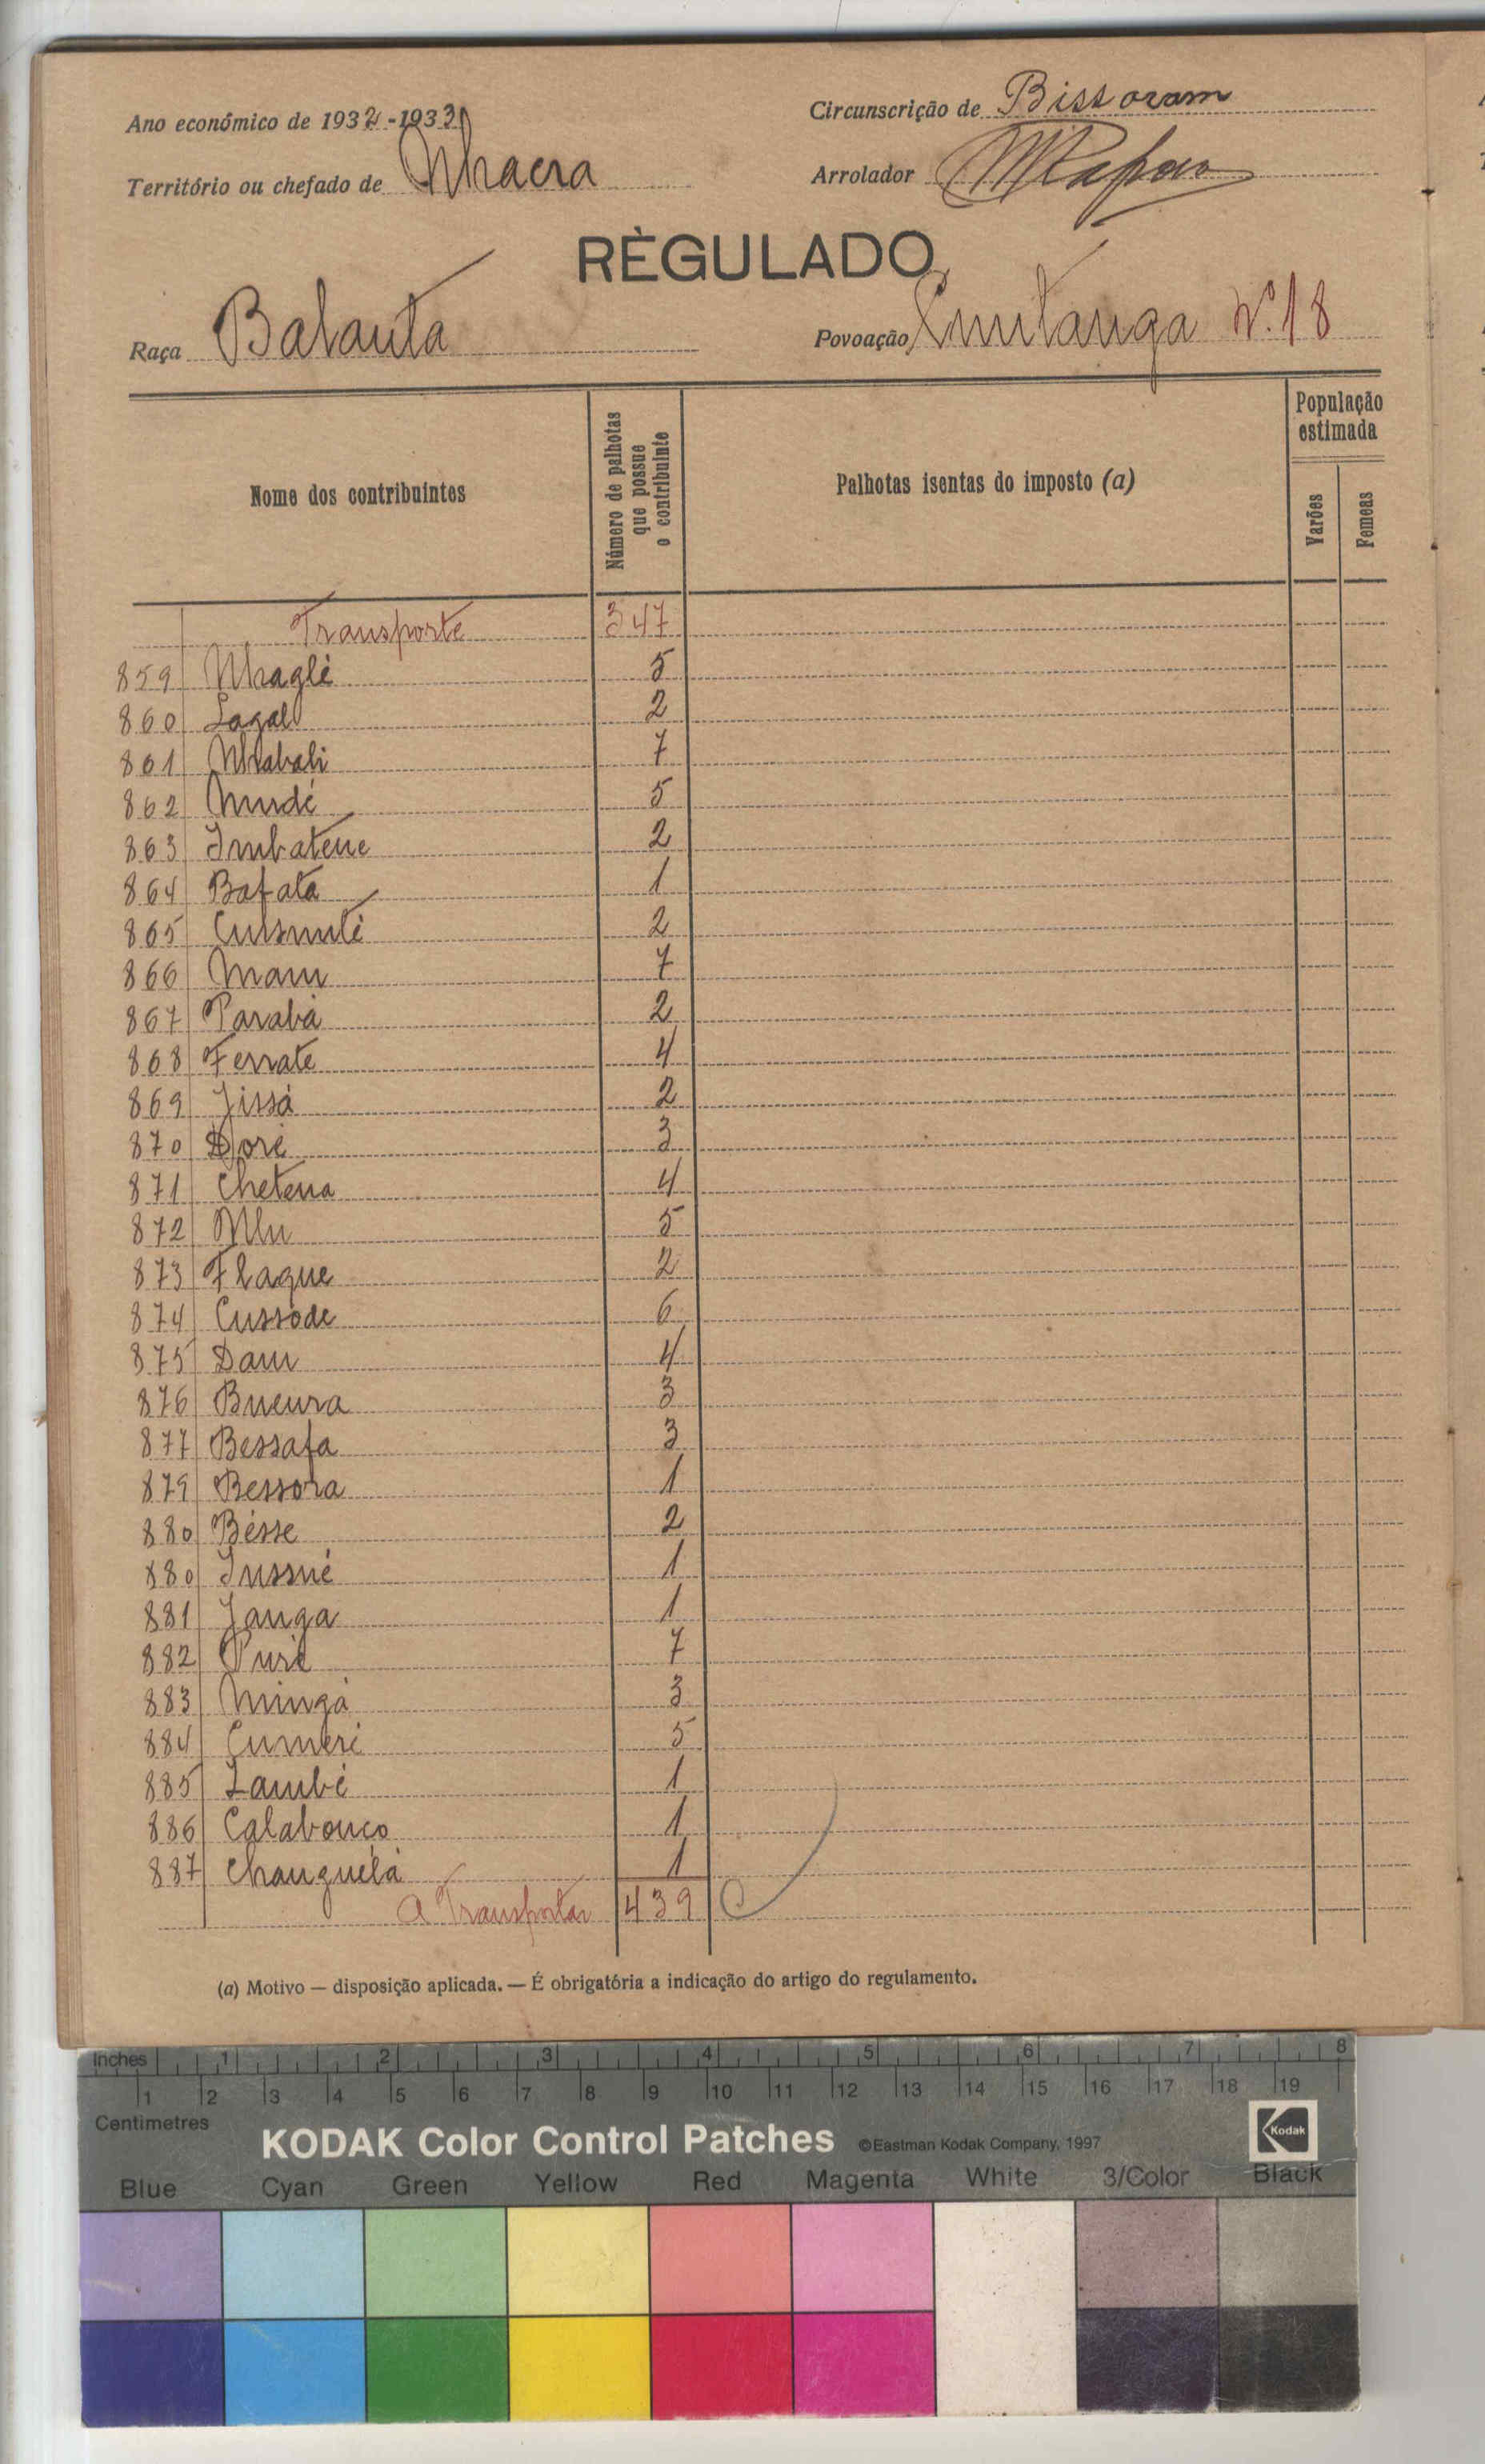 Ano económico de 1932-1933
Circunscrição de Bissoram
Território ou chefado de Nhacra
Arrolador
RÉGULADO
Raça Balanta
Povoação N.º 18
Nome dos contribuintes
Número de palhotas que possue o contribuinte
Palhotas isentas do imposto (a)
População estimada
Varões
Femeas
Transporte 347
859 Nhaglé 5
860 Lagal 2
861 Nhabali 7
862 5
863 Imbatene 2
864 Bafata 1
865 2
866 7
867 Parabá 2
868 Ferrate 4
869 Jissá 2
870 3
871 Chetena 4
872 5
873 Flaque 2
874 Cussóde 6
875 4
876 3
877 Bessafa 3
879 Bessora 1
880 Bésse 2
880 Jussué 1
881 Janga 1
882 7
883 Mingá 3
884 Cumeré 5
885 Lambé 1
886 Calabouco 1
887 Changuélá 1
A Transportar 439
(a) Motivo — disposição aplicada. — É obrigatória a indicação do artigo do regulamento.
Inches 1 2 3 4 5 6 7 8
1 2 3 4 5 6 7 8 9 10 11 12 13 14 15 16 17 18 19
Centimetres
KODAK Color Control Patches ©Eastman Kodak Company, 1997 Kodak
Blue Cyan Green Yellow Red Magenta White 3/Color Black